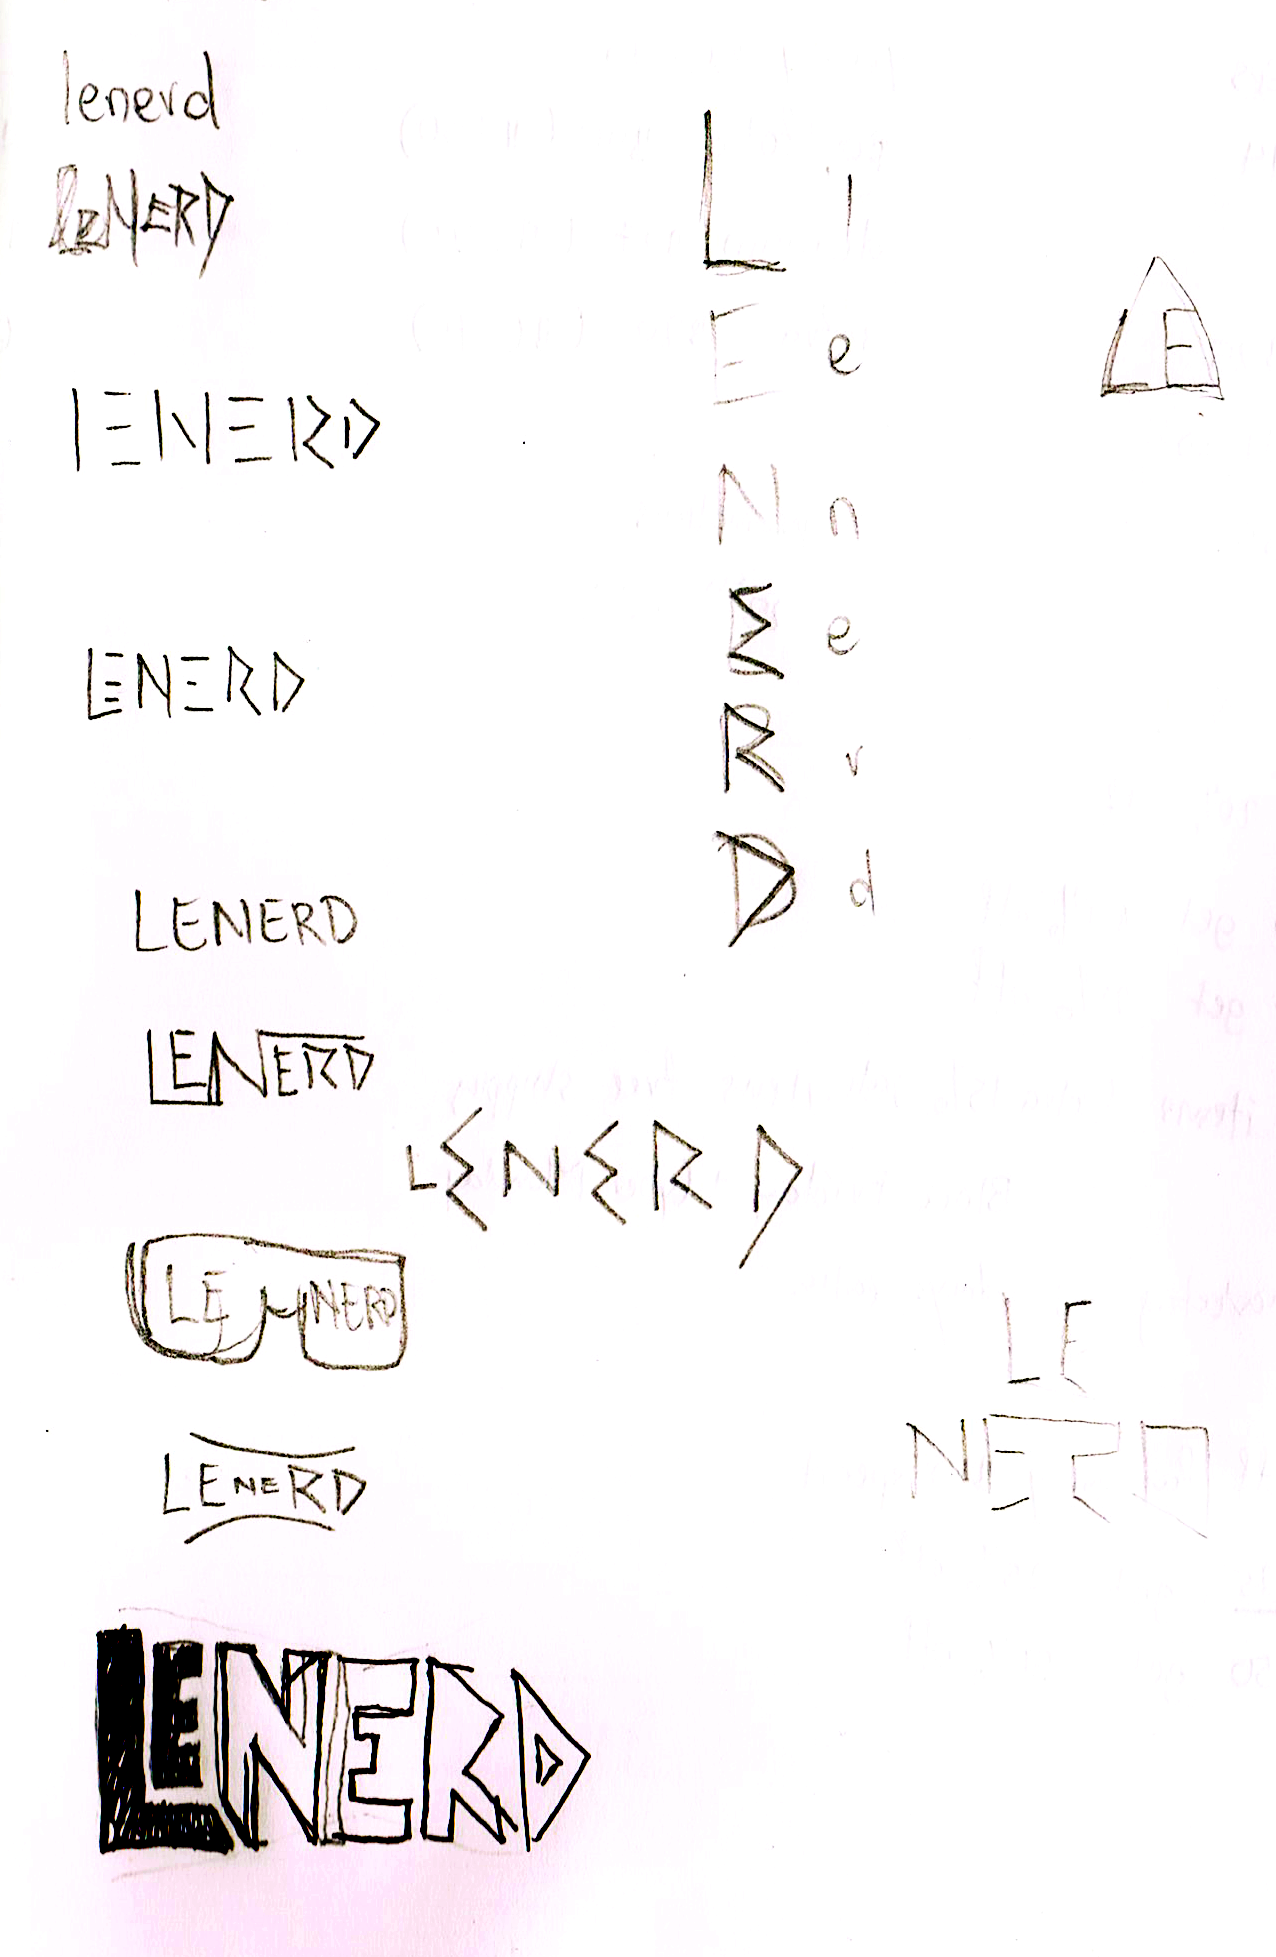 lenerd
LENERD
LENERD
LENERD
LENERD
LENERD
LENERD
LE NERD
LENERD
LENERD
L l
E e
N n
E e
R r
D d
LE
LE
NERD